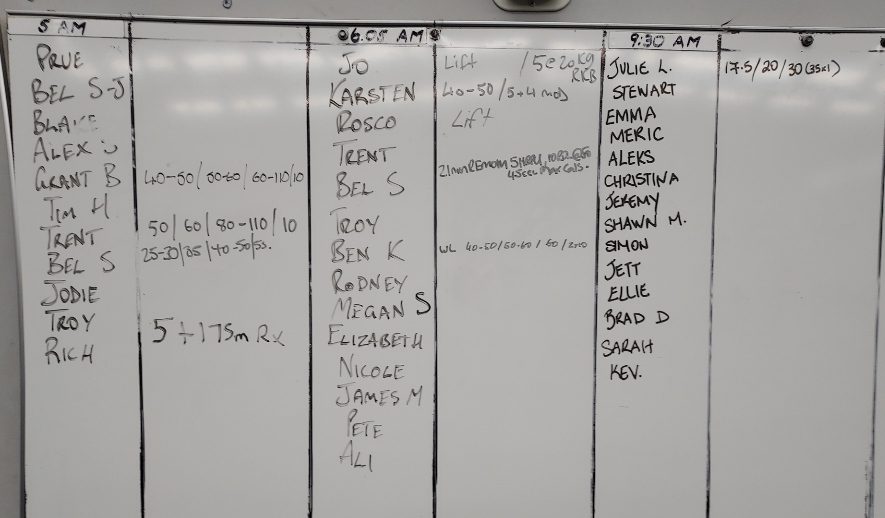 5 AM
PRUE
BEL S-J
BLAKE
ALEX
GRANT B 40-50/50-60/60-110/10
TIM H
TRENT 50/60/80-110/10
BEL S 25-30/35/40-50/55.
JODIE
TROY
RICH 5+175m RX
6.05 AM
JO Lift /5e20kg
RKB
KARSTEN 40-50/5+4 mod
ROSCO Lift
TRENT
BEL S
TROY
BEN K WL 40-50/50-60/60/2nd
RODNEY
MEGAN S
ELIZABETH
NICOLE
JAMES M
PETE
ALI
9:30 AM
JULIE L. 17.5/20/30(35x1)
STEWART
EMMA
MERIC
ALEKS
CHRISTINA
JEREMY
SHAWN M.
SIMON
JETT
ELLIE
BRAD D
SARAH
KEV.